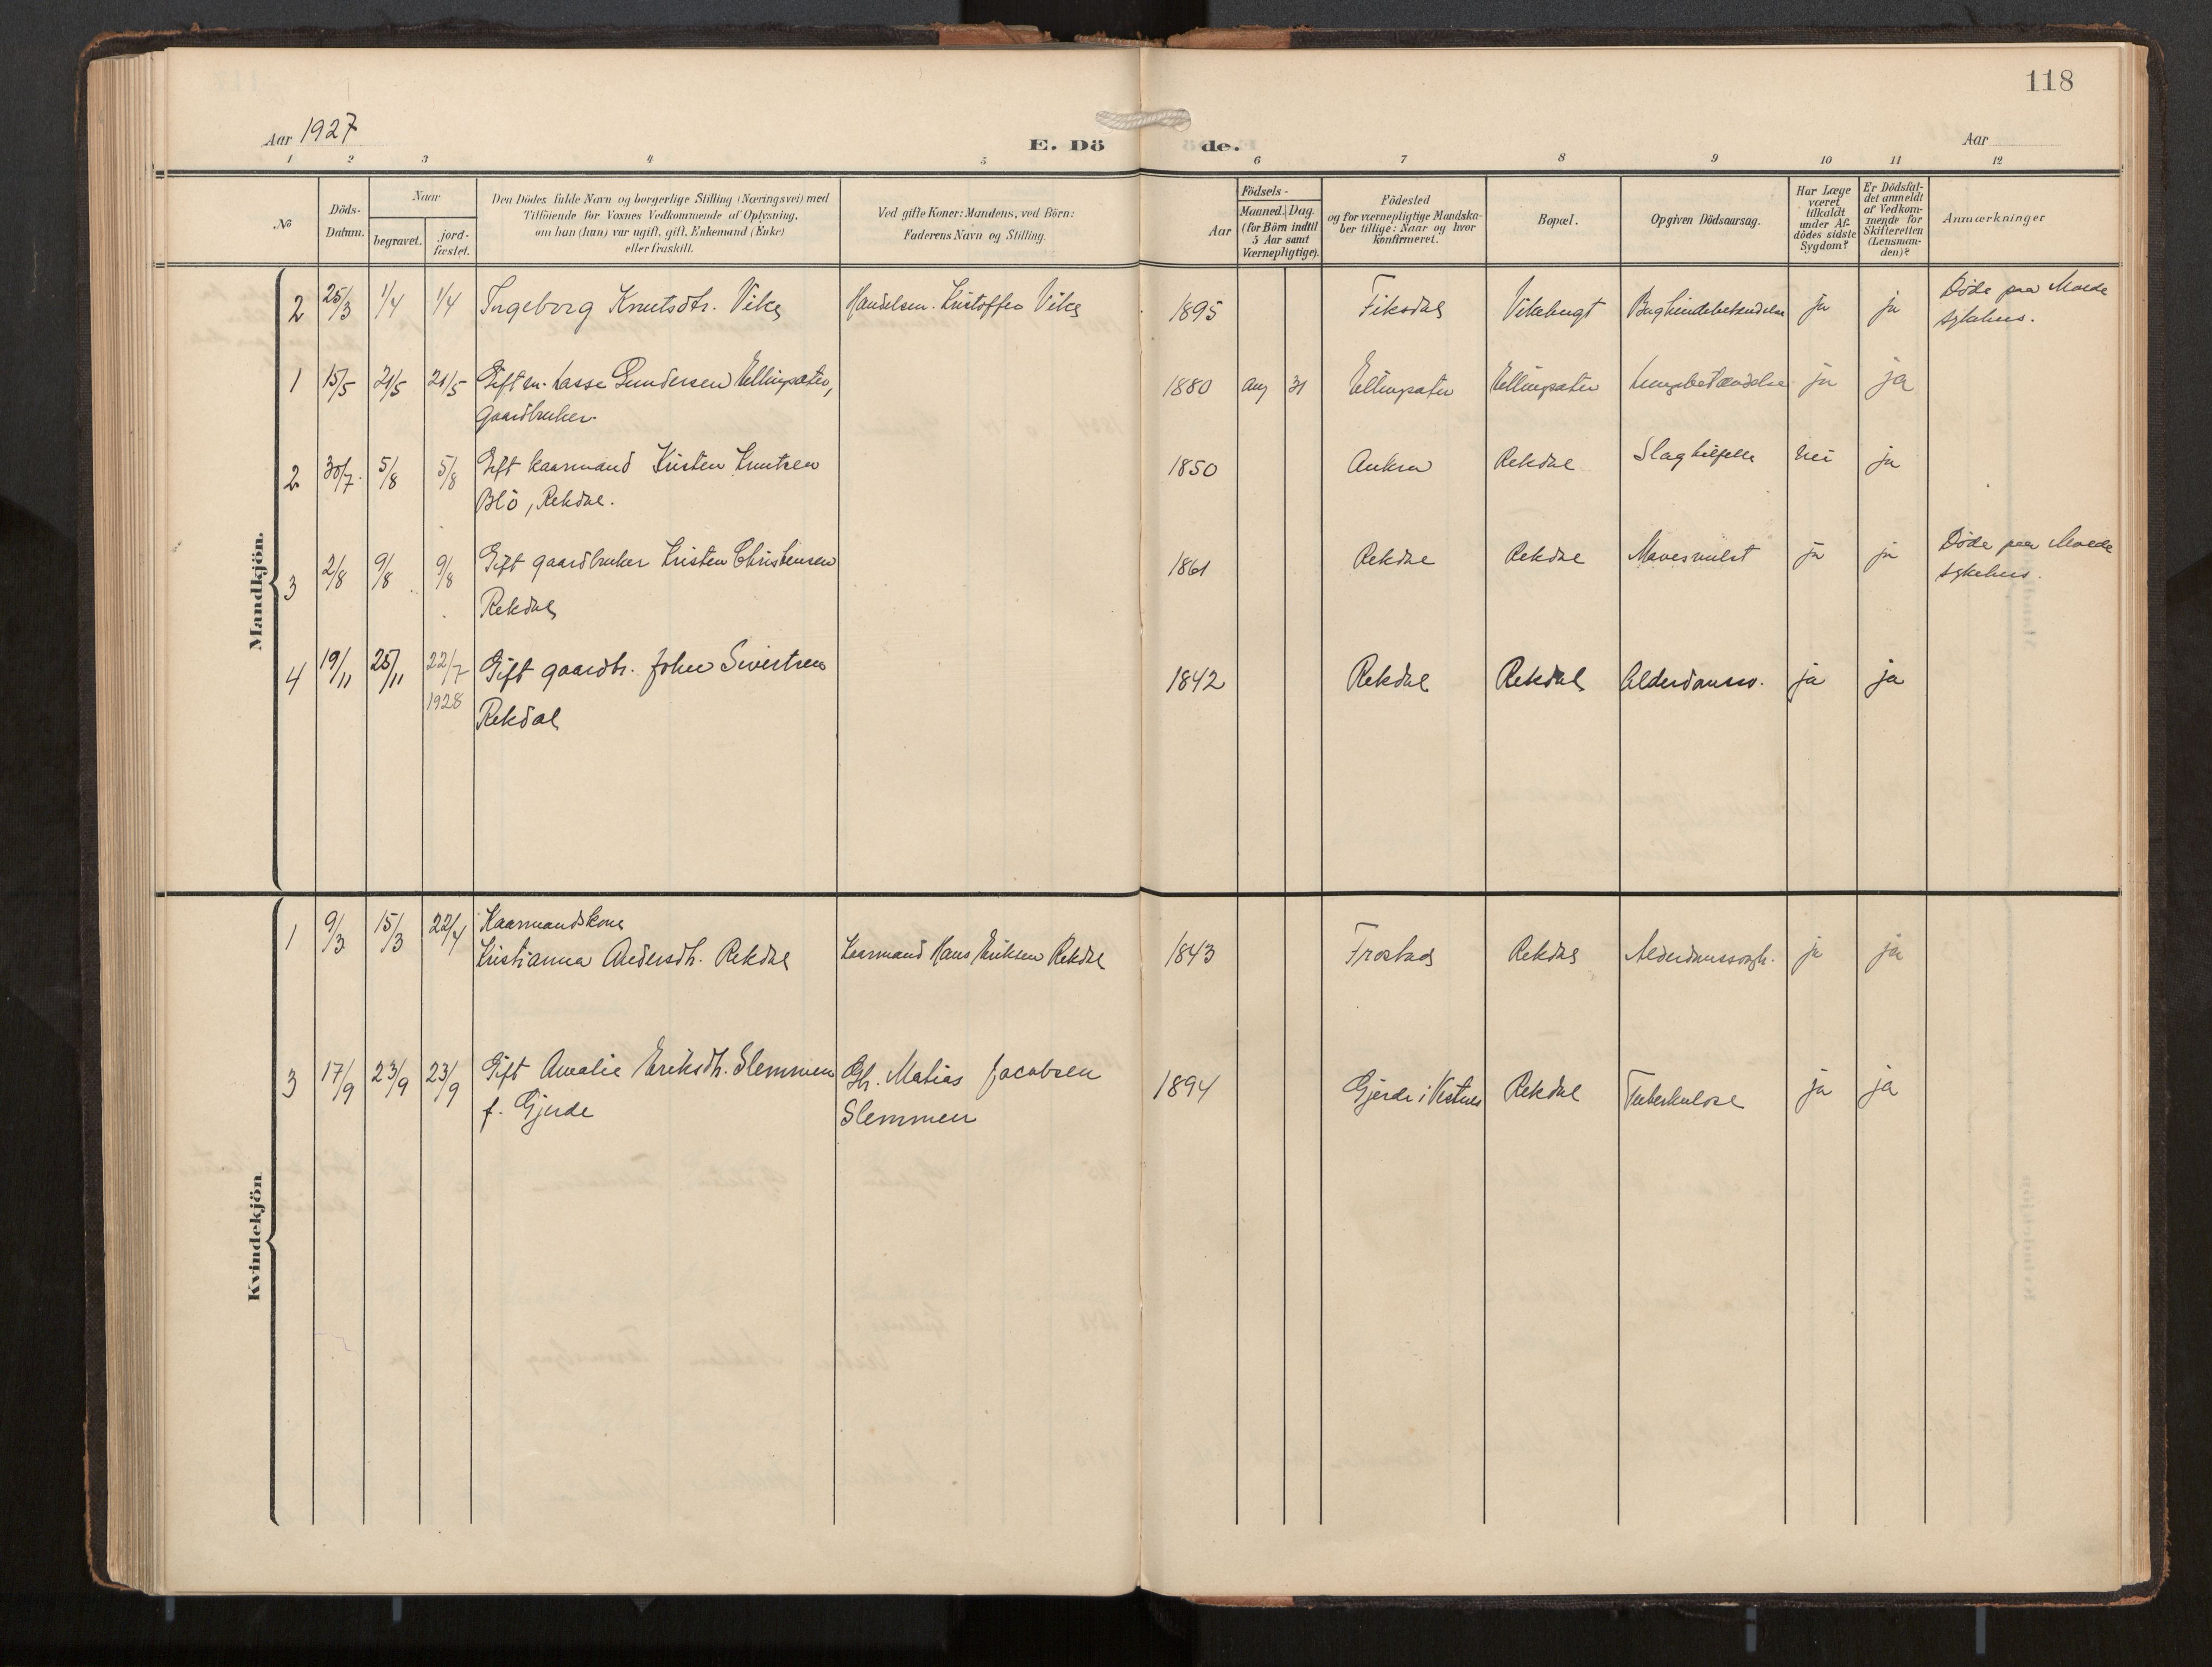 118
Aar 1927
E. Döde.
Aar
1 2 3 4 5 6 7 8 9 10 11 12
No
Döds-Datum.
Naar
begravet.
jord-fæstet.
Den Dödes fulde Navn og borgerlige Stilling (Næringsvei) med
Tilföiende for Voxnes Vedkommende af Oplysning,
om han (hun) var ugift, gift, Enkemand (Enke)
eller fraskilt.
Ved gifte Koner: Mandens, ved Börn:
Faderens Navn og Stilling.
Födsels-
Aar
Maaned. Dag.
(for Börn indtil
5 Aar samt
Værnepligtige).
Födested
og for værnepligtige Mandska-
ber tillige: Naar og hvor
konfirmeret.
Bopæl.
Opgiven Dödsaarsag.
Har Læge
været
tilkaldt
under Af-
dödes sidste
Sygdom?
Er Dödsfal-
det anmeldt
af Vedkom-
mende for
Skifteretten
(Lensman-
den)?
Anmærkninger
Mandkjön.
2 25/3 1/4 1/4 Ingeborg Knutsdtr. Vike Handelsm. Kristoffer Vike 1895 Fiksdal Vikebugt Bughindebetændelse ja ja Döde paa Molde
sykehus.
1 15/5 21/5 21/5 Gift m. Lasse Gundersen Ellingsæter, 1880 Aug 31 Ellingsæter Ellingsæter Lungebetændelse ja ja
gaardbruker.
2 30/7 5/8 5/8 Gift kaarmand Kristen Knutsen 1850 Aukra Rekdal Slagtilfelle nei ja
Blö, Rekdal.
3 2/8 9/8 9/8 Gift gaardbruker Kristen Christensen 1861 Rekdal Rekdal Mavesvulst ja ja Döde paa Molde
sykehus.
Rekdal
4 19/11 25/11 22/7 Gift gaardbr. John Sivertsen 1842 Rekdal Rekdal Alderdomssv. ja ja
1928 Rekdal
Kvindekjön
1 9/3 15/3 22/4 Kaarmandskone
Kristianna Andersdtr. Rekdal Kaarmand Hans Eriksen Rekdal 1843 Frostad Rekdal ja ja
3 17/9 23/9 23/9 Gift Amalie Eriksdtr. Slemmen Gbr. Matias Jacobsen 1894 Gjerde i Vestnes Rekdal Tuberkulose ja ja
f. Gjerde Slemmen